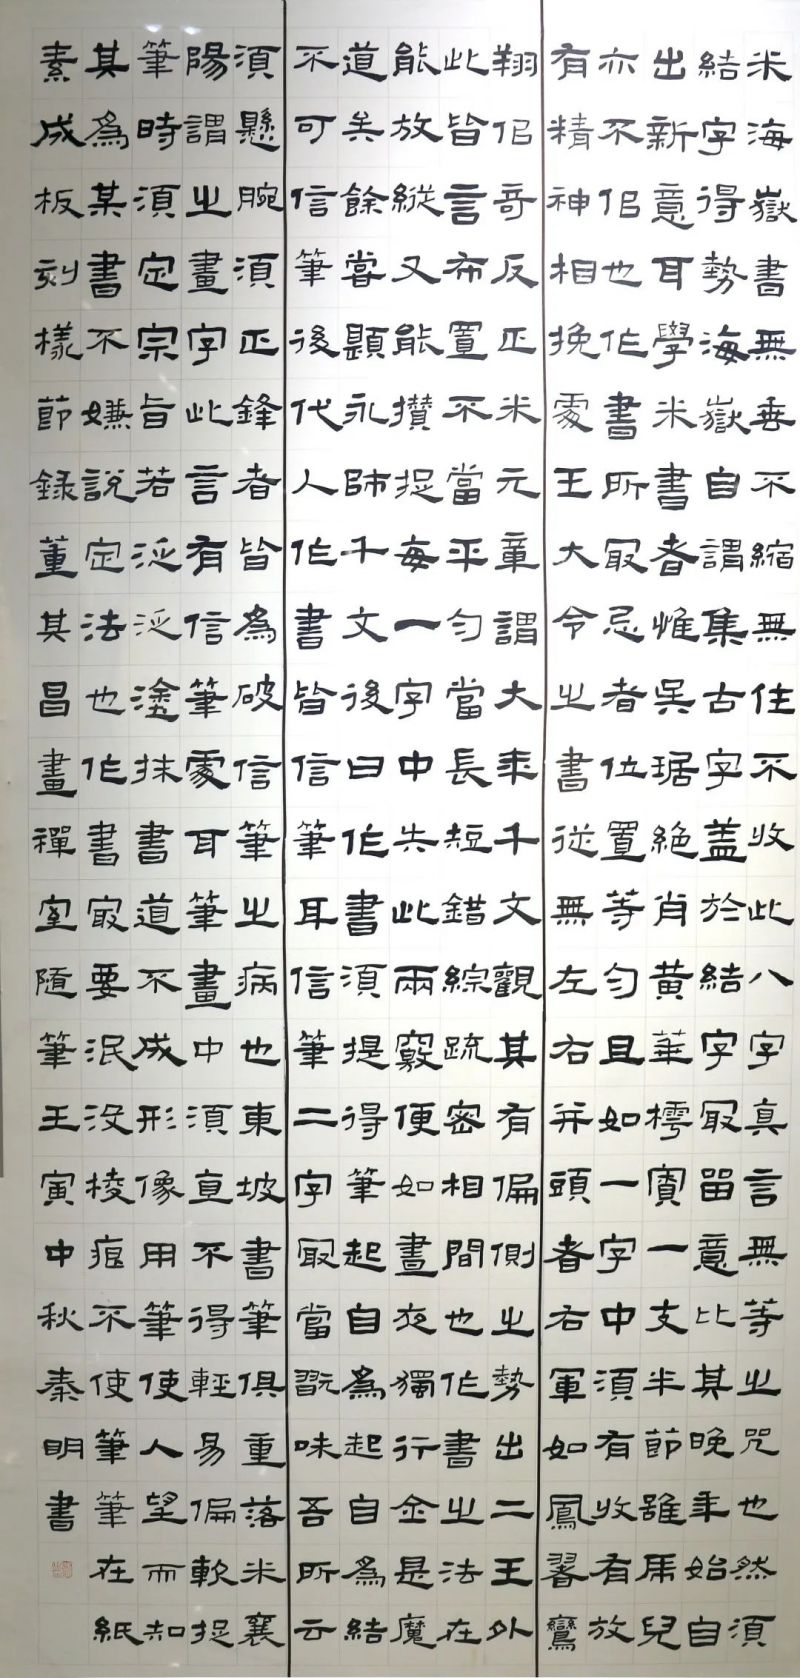 米海嶽書無垂不縮無住不收此八字真言無等之咒也然須
結字得勢海嶽自謂集古字蓋於結字最留意比其晚年始自
出新意耳學米書者惟吳琚絕肖黃華樗賓一支半節雖虎兒
亦不佀也作書所最忌者位置等勻且如一字中須有收有放
有精神相挽處王大令之書從無左右并頭者右軍如鳳翥鸞
翔佀奇反正米元章謂大年千文觀其有偏側之勢出二王外
此皆言布置不當平勻當長短錯綜疏密相間也作書之法在
能放縱又能攢捉每一字中失此兩竅便如晝夜獨行全是魔
道矣餘嘗題永師千文後曰作書須提得筆起自為起自為結
不可信筆後代人作書皆信筆耳信筆二字最當翫味吾所云
須懸腕須正鋒者皆為破信筆之病也東坡書筆俱重落米襄
陽謂之畫字此言有信筆處耳筆畫中須直不得輕易偏軟捉
筆時須定宗旨若泛泛塗抹書道不成形像用筆使人望而知
其為某書不嫌說定法也作書最要泯沒棱痕不使筆筆在紙
素成板刻樣節錄董其昌畫禪室隨筆壬寅中秋秦明書